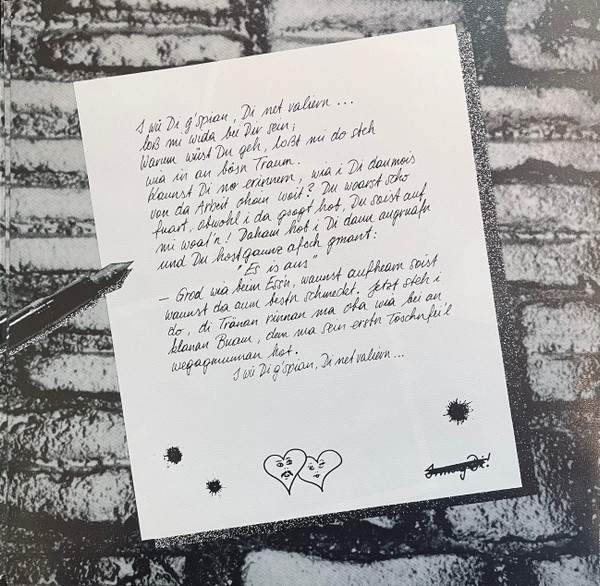 I wü Di g'spian, Di net valiern ...
loß mi wida bei Dir sein;
Warum wüst Du geh, loßt mi do steh
wia in an bösn Traum.
Kaunst Di no erinnern, wia i Di daumois
von da Arbeit ohoin woit? Du woarst scho
fuart, obwohl i da gsogt hob, Du soist auf
mi woat'n! Daham hob i Di daun augruafn
und Du host gaunz afoch gmant:
"Es is aus"
– Grod wia beim Essn, waunst aufhearn soist
waunst da aum bestn schmeckt. Jetzt steh i
do, di Tränan rinnan ma oba wia bei an
klanan Buam, dem ma sein erstn Toschnfeil
wegagnumman hot.
I wü Di g'spian, Di net valiern ...